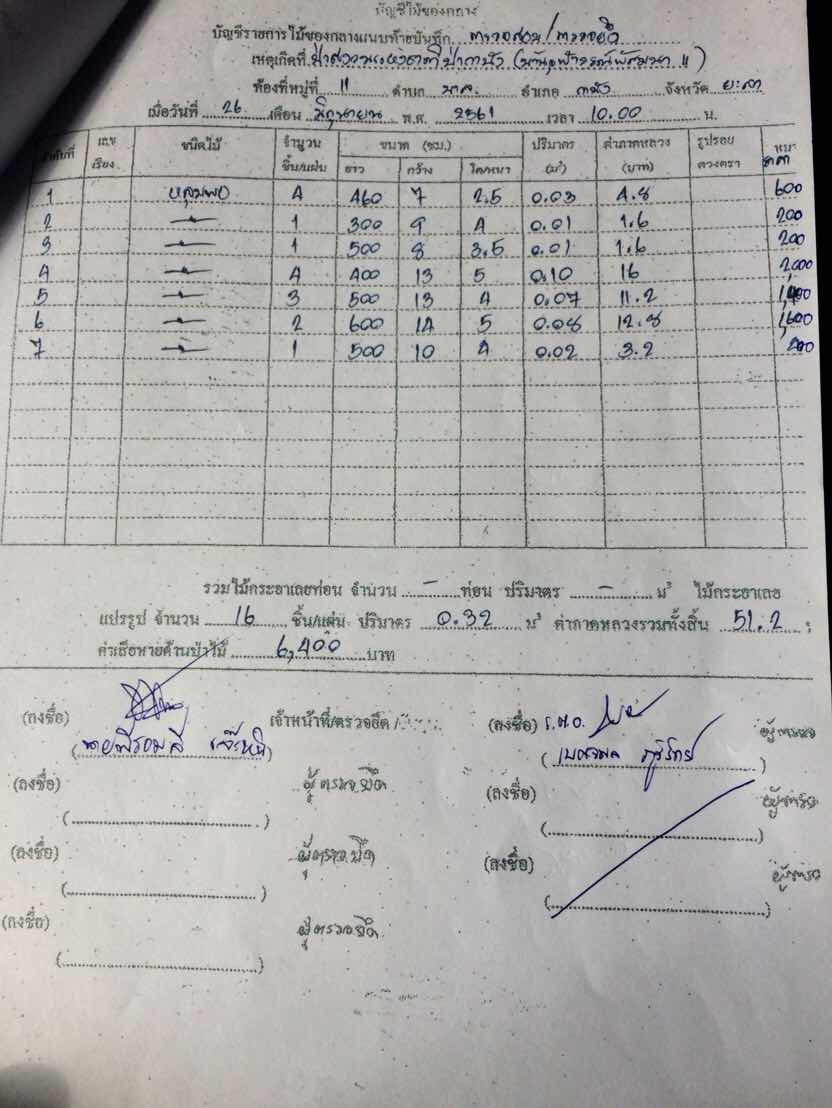 บัญชีไม้ของกลาง
บัญชีรายการไม้ของกลางแนบท้ายบันทึก ตรวจสอบ/ตรวจยึด
เหตุเกิดที่ ป่าสงวนแห่งชาติป่ากาบัง
ท้องที่หมู่ที่ 11 ตำบล บาละ อำเภอ กาบัง จังหวัด ยะลา
เมื่อวันที่ 26 เดือน มิถุนายน พ.ศ. 2561 เวลา 10.00 น.
ลำดับที่ เลขเรียง ชนิดไม้ จำนวน ชิ้น/แผ่น ขนาด (ซม.) ยาว กว้าง โต/หนา ปริมาตร (ม³) ค่าภาคหลวง (บาท) รูปรอย ดวงตรา
1 หลุมพอ 4 460 7 2.5 0.03 4.8 600
2 1 300 9 4 0.01 1.6 200
3 1 500 8 3.5 0.01 1.6 200
4 4 400 13 5 0.10 16 2,000
5 3 500 13 4 0.07 11.2 1,400
6 2 600 14 5 0.08 12.8 1,600
7 1 500 10 4 0.02 3.2
รวมไม้กระยาเลยท่อน จำนวน – ท่อน ปริมาตร – ม³ ไม้กระยาเลย
แปรรูป จำนวน 16 ชิ้น/แผ่น ปริมาตร 0.32 ม³ ค่าภาคหลวงรวมทั้งสิ้น 51.2
ค่าเสียหายด้านป่าไม้ 6,400 บาท
(ลงชื่อ) เจ้าหน้าที่/ตรวจยึด (ลงชื่อ) ร.ต.อ.
(ลงชื่อ) ผู้ตรวจยึด (ลงชื่อ)
(ลงชื่อ) ผู้ตรวจยึด (ลงชื่อ)
(ลงชื่อ) ผู้ตรวจยึด